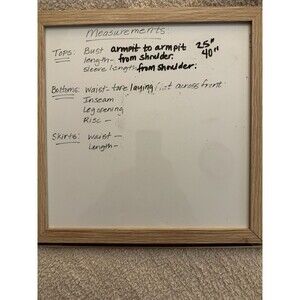 Measurements:
Tops: Bust armpit to armpit 25"
length- from shoulder. 40"
sleeve length from shoulder.
Bottoms: Waist- tape laying flat across front
Inseam
Leg opening
Rise -
Skirts: Waist -
Length -